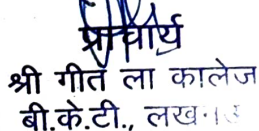 प्राचार्य
श्री गीत ला कालेज
बी.के.टी., लख